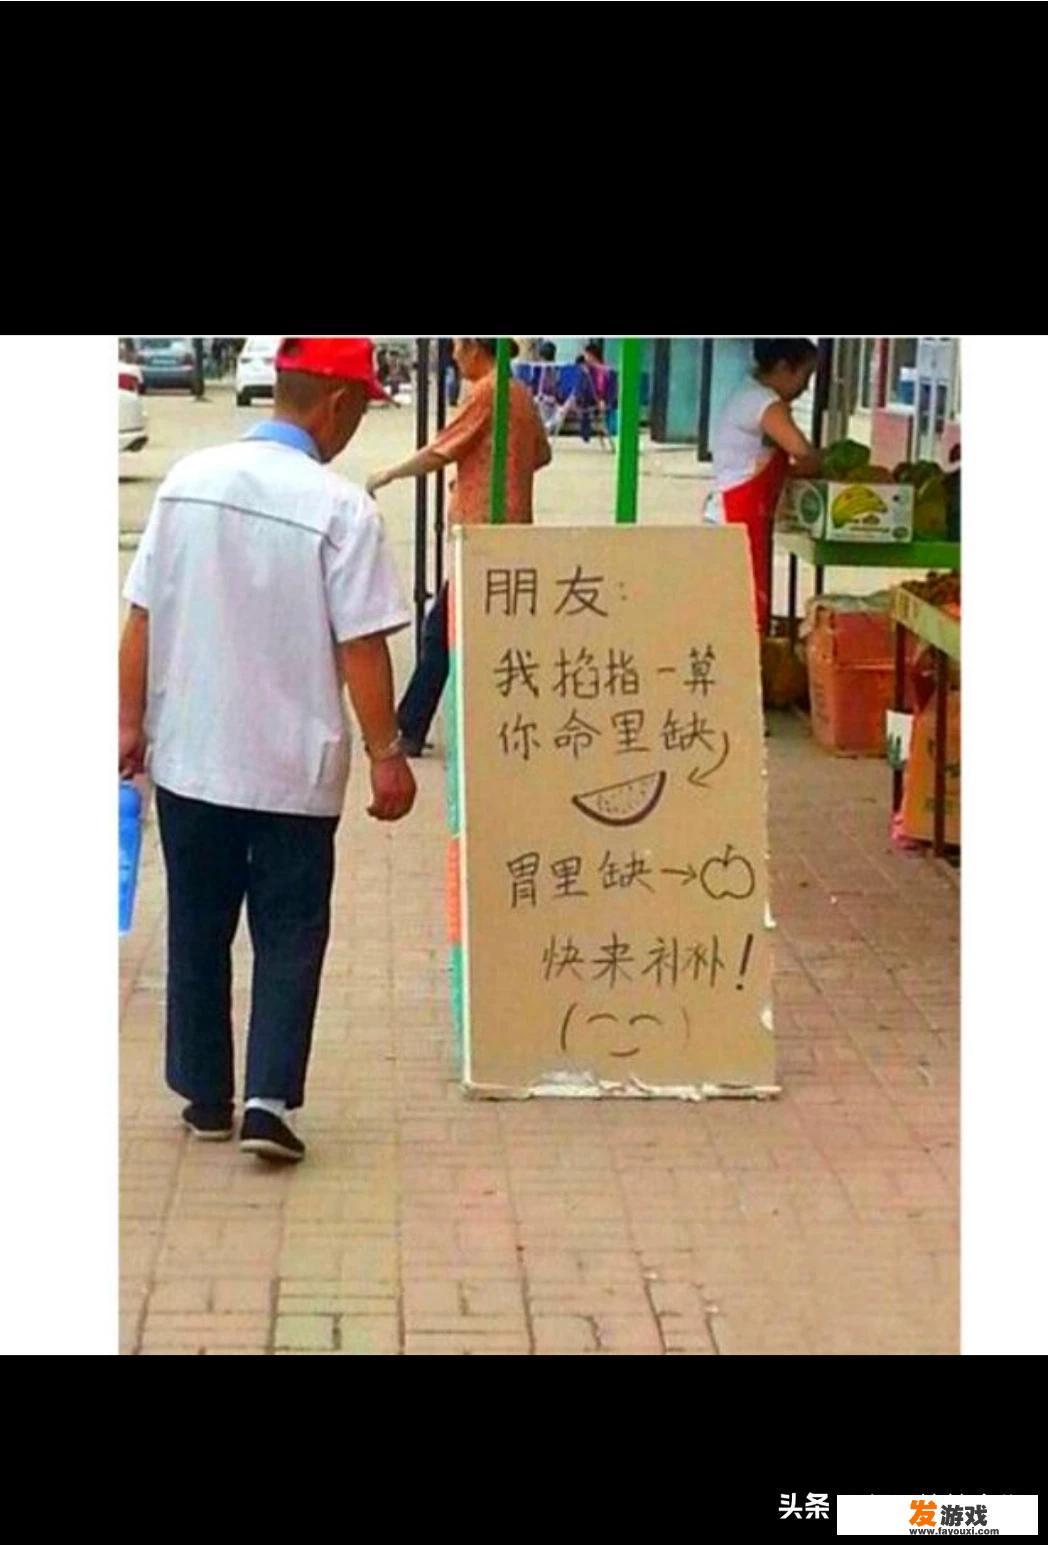 朋友:
我掐指一算
你命里缺
胃里缺→
快来补补!
头条
发游戏
www.fayouxi.com